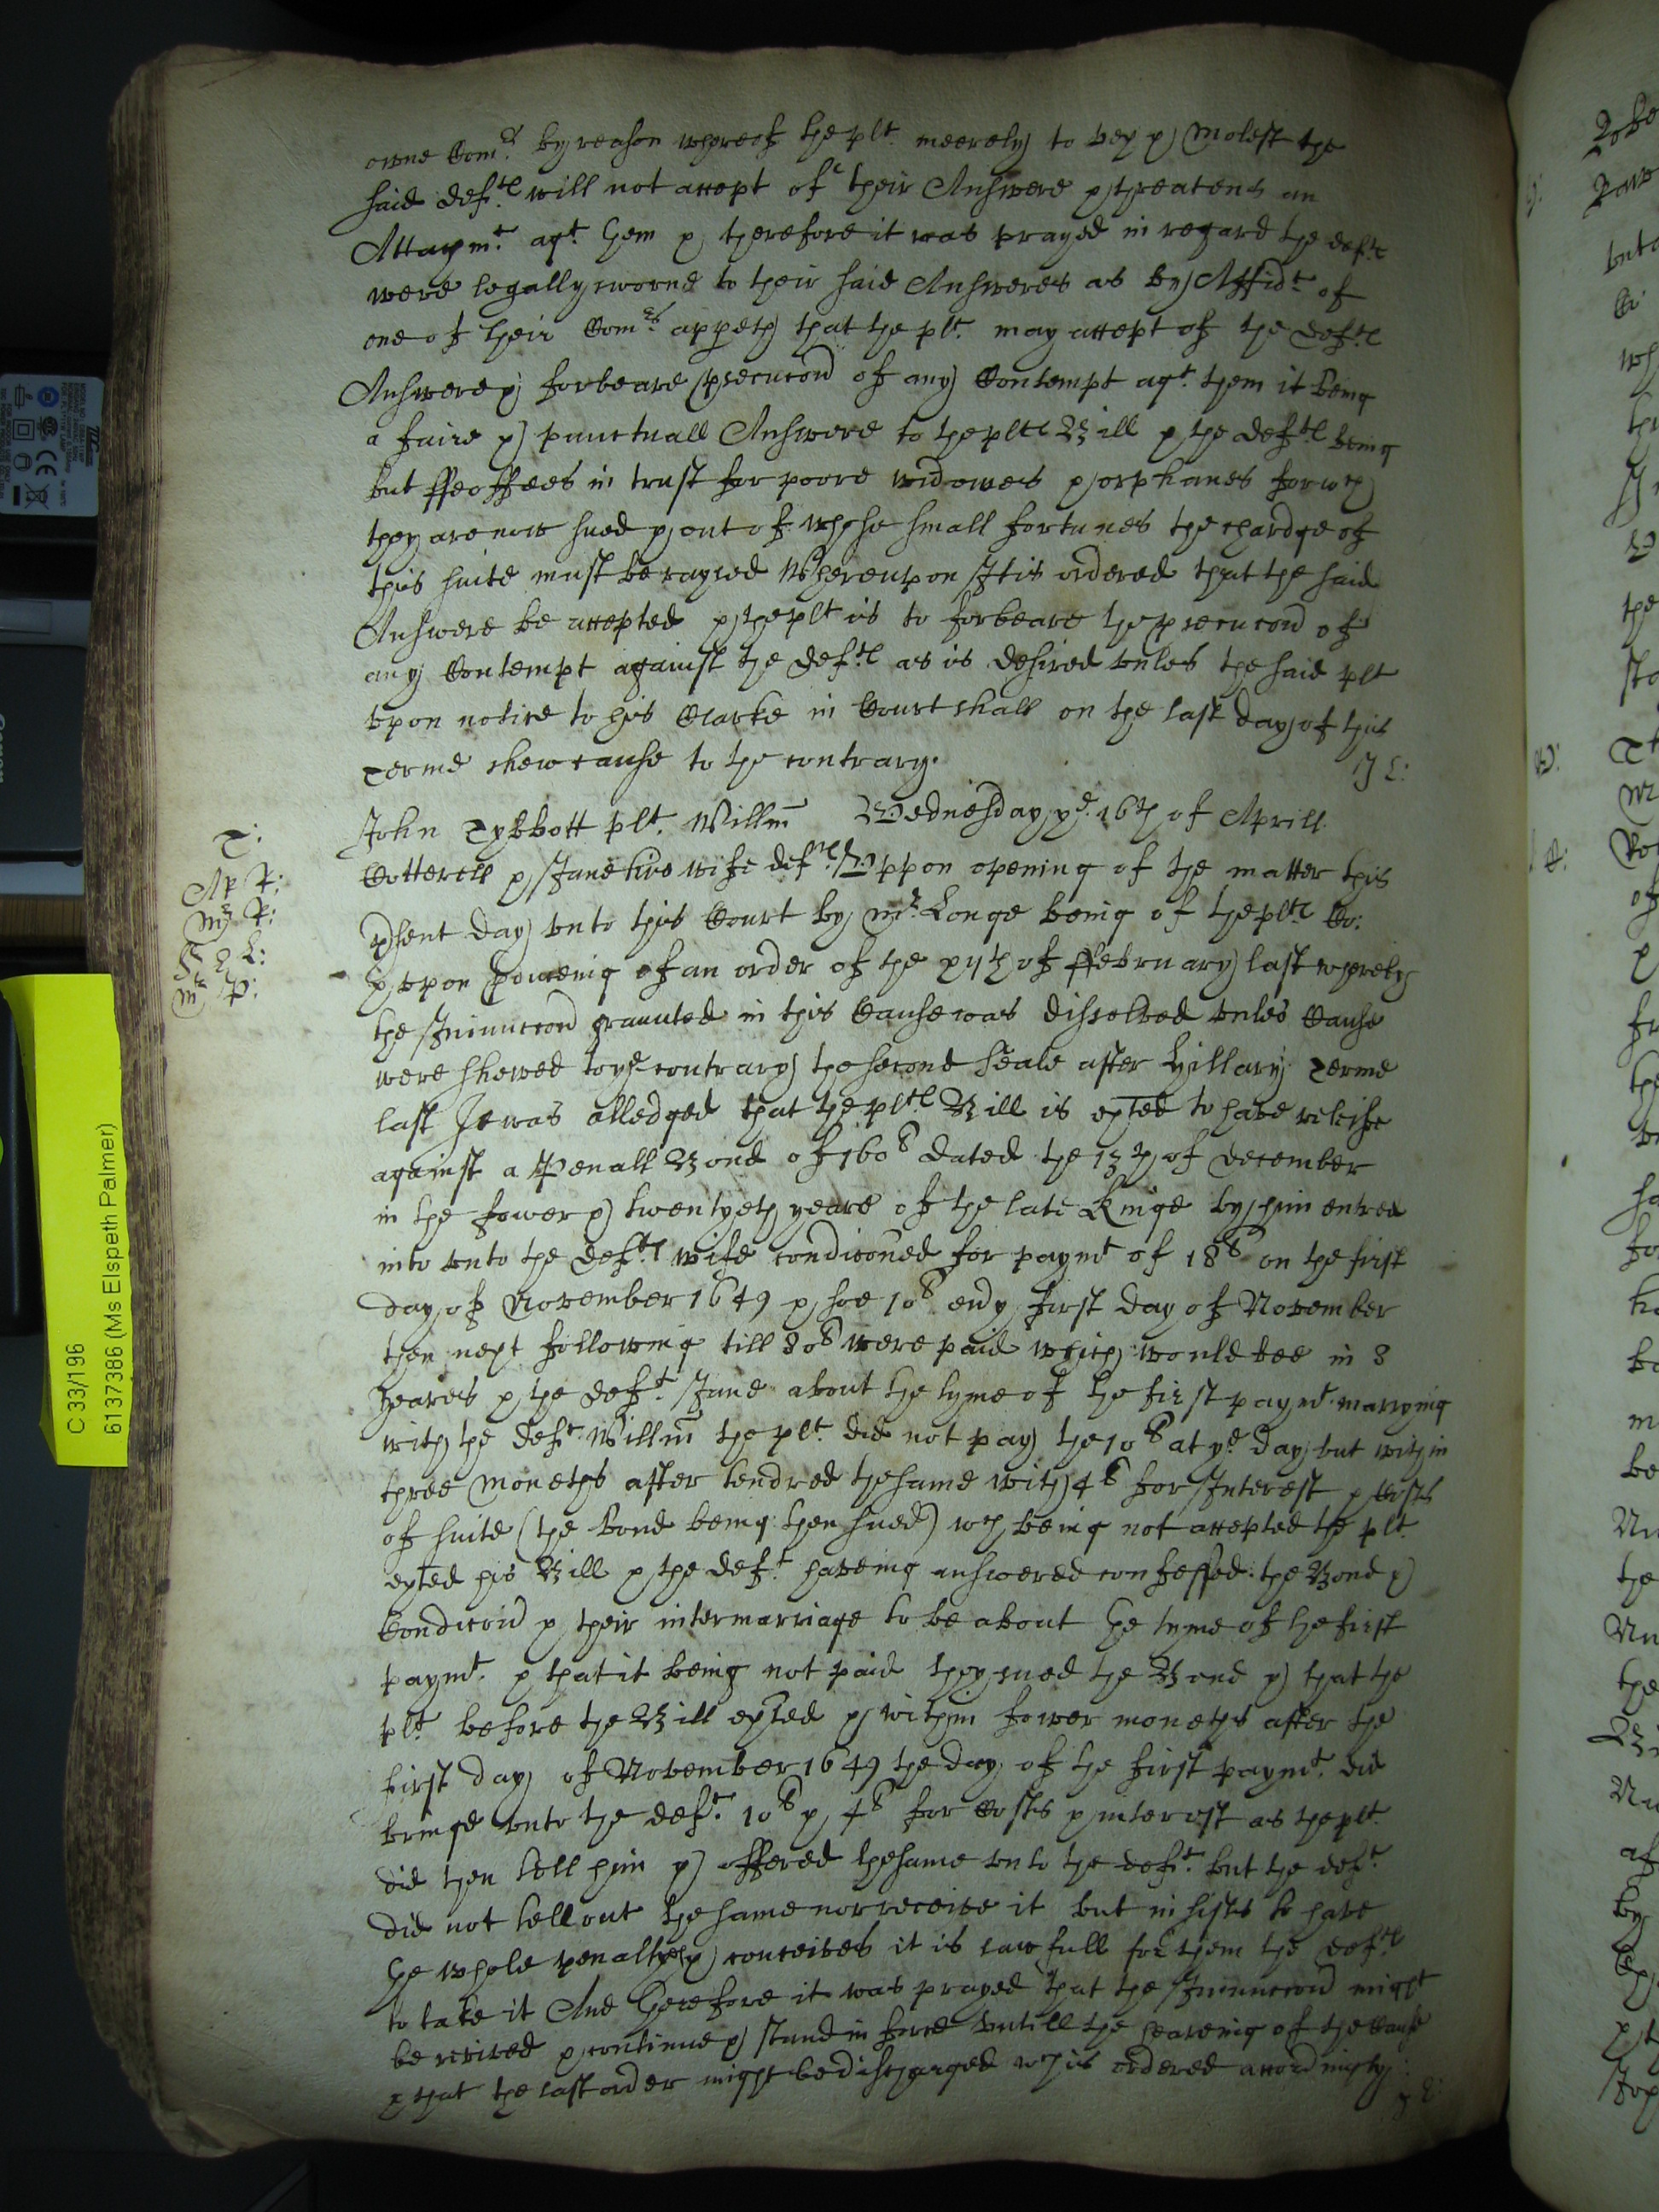 owne Com.rs by reason whereof the plt. meerely to vex & molest the
said deftes will not accept of their Answere & threatens an
Attaymt. agt. them & therefore it was prayed in regard the deftes
were legally sworne to their said Answeres as by Affidt. of
one of their Comrs. appeth that the plt. may accept of the Deftes
Answere & forbeare psecucion of any Contempt agt. them it being
a faire & punctuall Answere to the pltes Bill & the deftes being
but ffeoffees in trust for poore widowes & orphanes for wch
they are now sued & out of whose small fortunes the chardge of
this suite must be raysed Whereupon It is ordered that the said
Answere be accepted & the plt is to forbeare the psecucion of
any Contempt against the deftes as is desired unles the said plt
vpon notice to his Clarke in Court shall on the last day of this
Terme shew cause to the contrary.
J L:
T:
John Tybbott plt. Willm Wednesday ye. 16th of Aprill
Cotterell & Jane his wife deftes Vppon opening of the matter this
psent day vnto this Court by Mr. Longe being of the pltes Co:
& vpon heareing of an order of the xijth of ffebruary last whereby
the Iniunccion graunted in this Cause was dissolved vnles Cause
were shewed to ye contrary the second Seale after Hillary Terme
last It was alledged that the pltes Bill is exted to have releife
against a Penall Bond of 160l dated the 13th of December
in the fower & twentyeth yeare of the late Kinge by him entred
into vnto the deftes wife condiconed for paymt of 18l on the first
day of November 1649 & soe 10l eṽy first day of November
then next following till 80l were paid which would bee in 8
yeares & the deft. Jane about the tyme of the first paymt. marrying
with the deft Willm the plt. did not pay the 10l at ye day but within
three moneths after tendred the same with 4l for Interest & Costs
of suite (the Bond being then sued) wch being not accepted the plt.
exted his Bill & the deft. haveing answered confessed the Bond &
Condicion & their intermarriage to be about the tyme of the first
paymt. & that it being not paid they sued the Bond & that the
plt. before the Bill exted & within fower moneths after the
first day of November 1649 the day of the first paymt. did
bringe vnto the deft. 10l & 4l for Costs & interest as the plt.
did then tell him & offered the same vnto the deft. but the deft.
did not tell out the same nor receive it but insists to have
the whole penalty & conceives it is lawfull for them the deftes
to take it And therefore it was prayed that the Iniunccion might
be revived & continue & stand in force vntill the heareing of the Cause
& that the last order might be discharged wch is ordered accordingly
C 33/196
6137386 (Ms Elspeth Palmer)